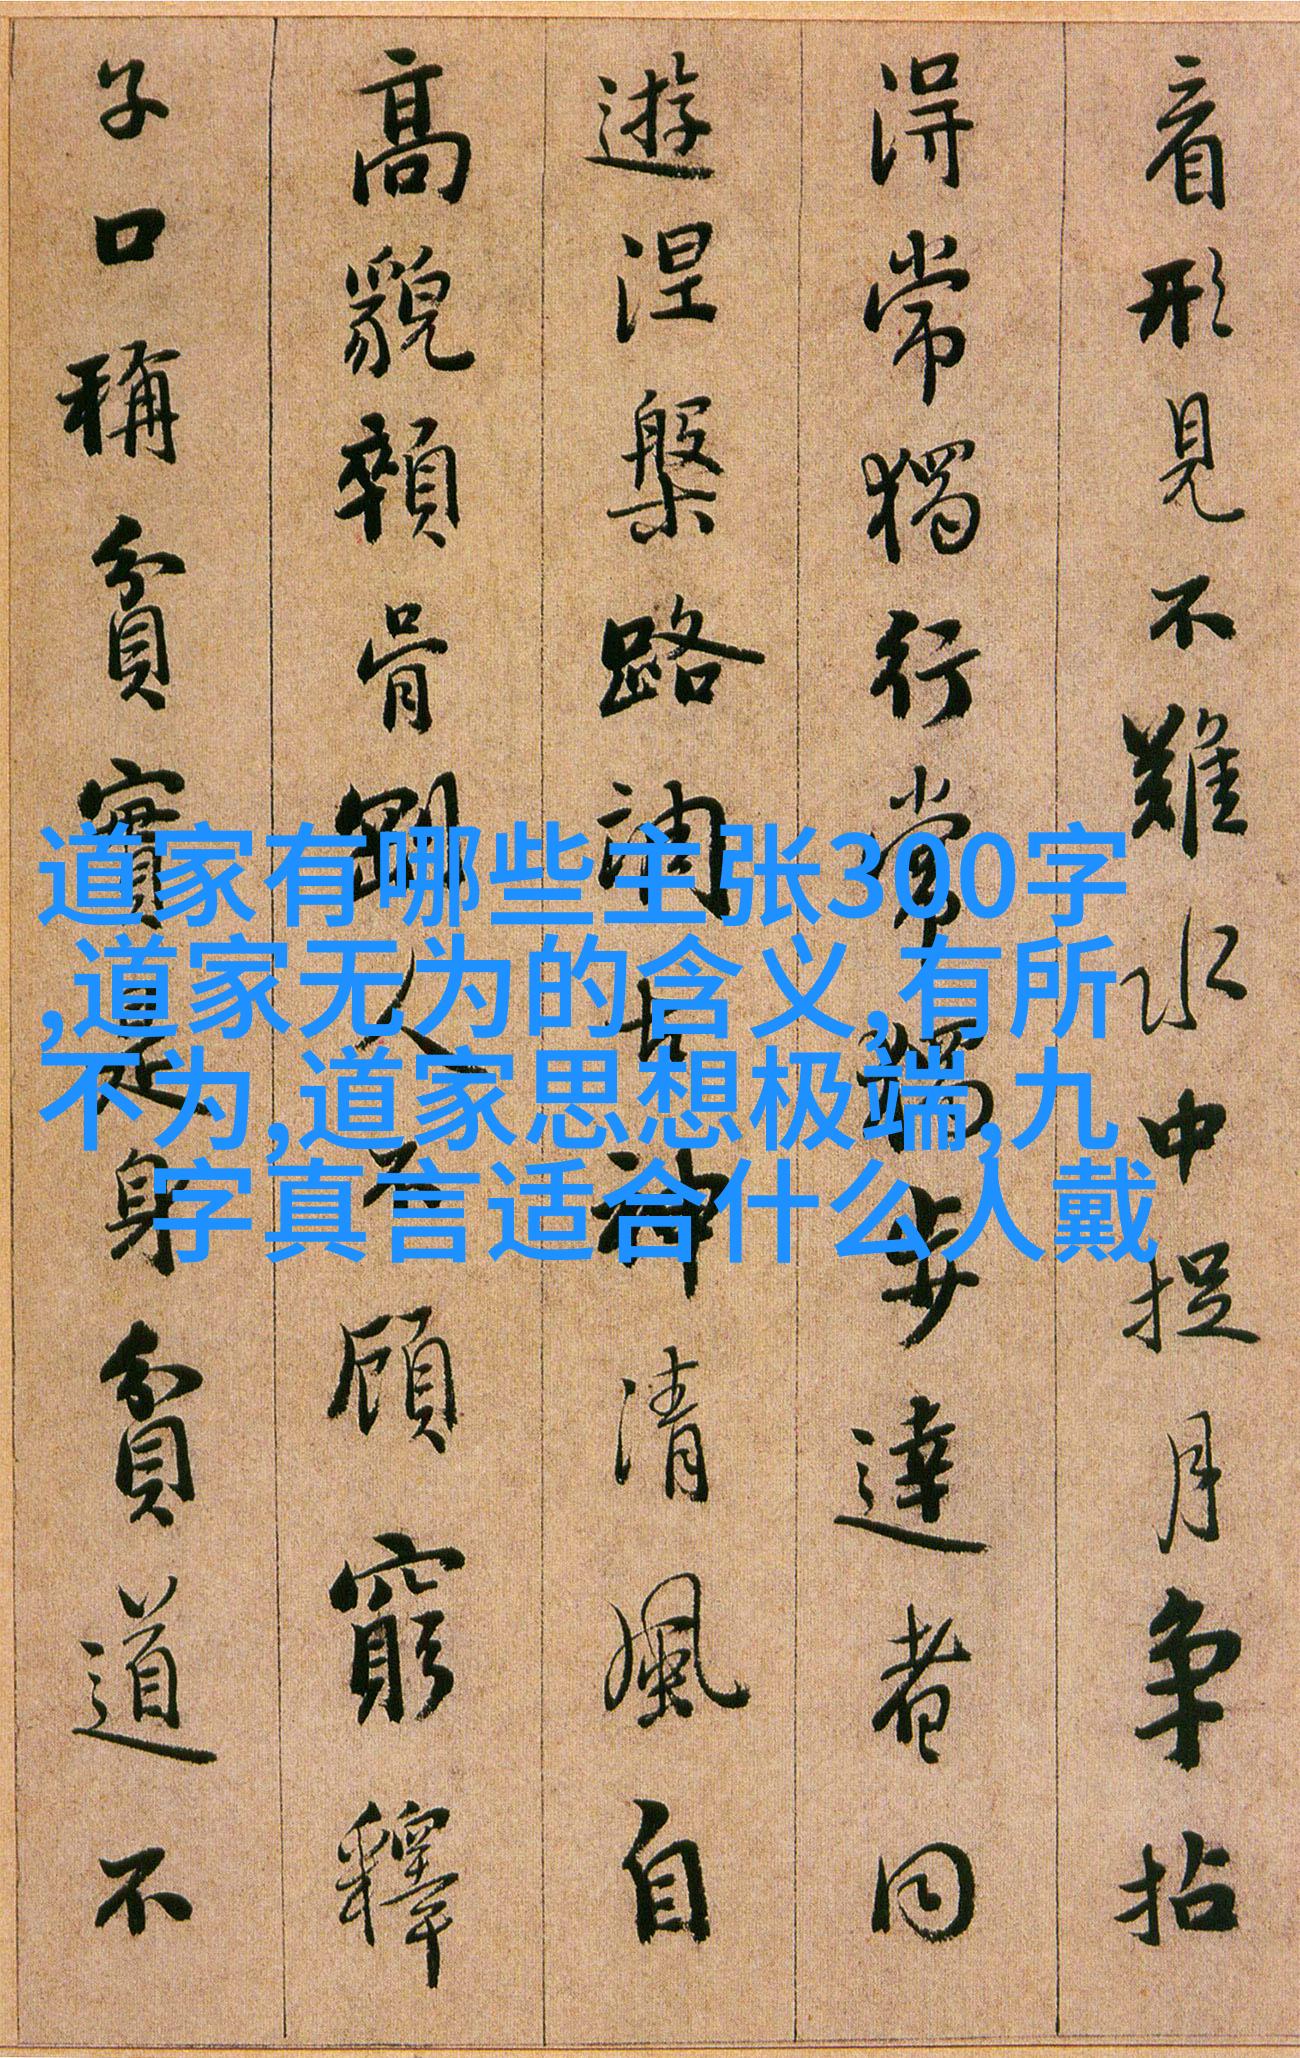 音形見不難水中捉月爭拈
得常獨行常獨步達者同
遊涅槃路調古神清風自
高貌顇骨剛人不顧窮釋
子口稱貧實是身貧道不
道家有哪些主张300字
,道家无为的含义,有所
不为,道家思想极端,九
字真言适合什么人戴